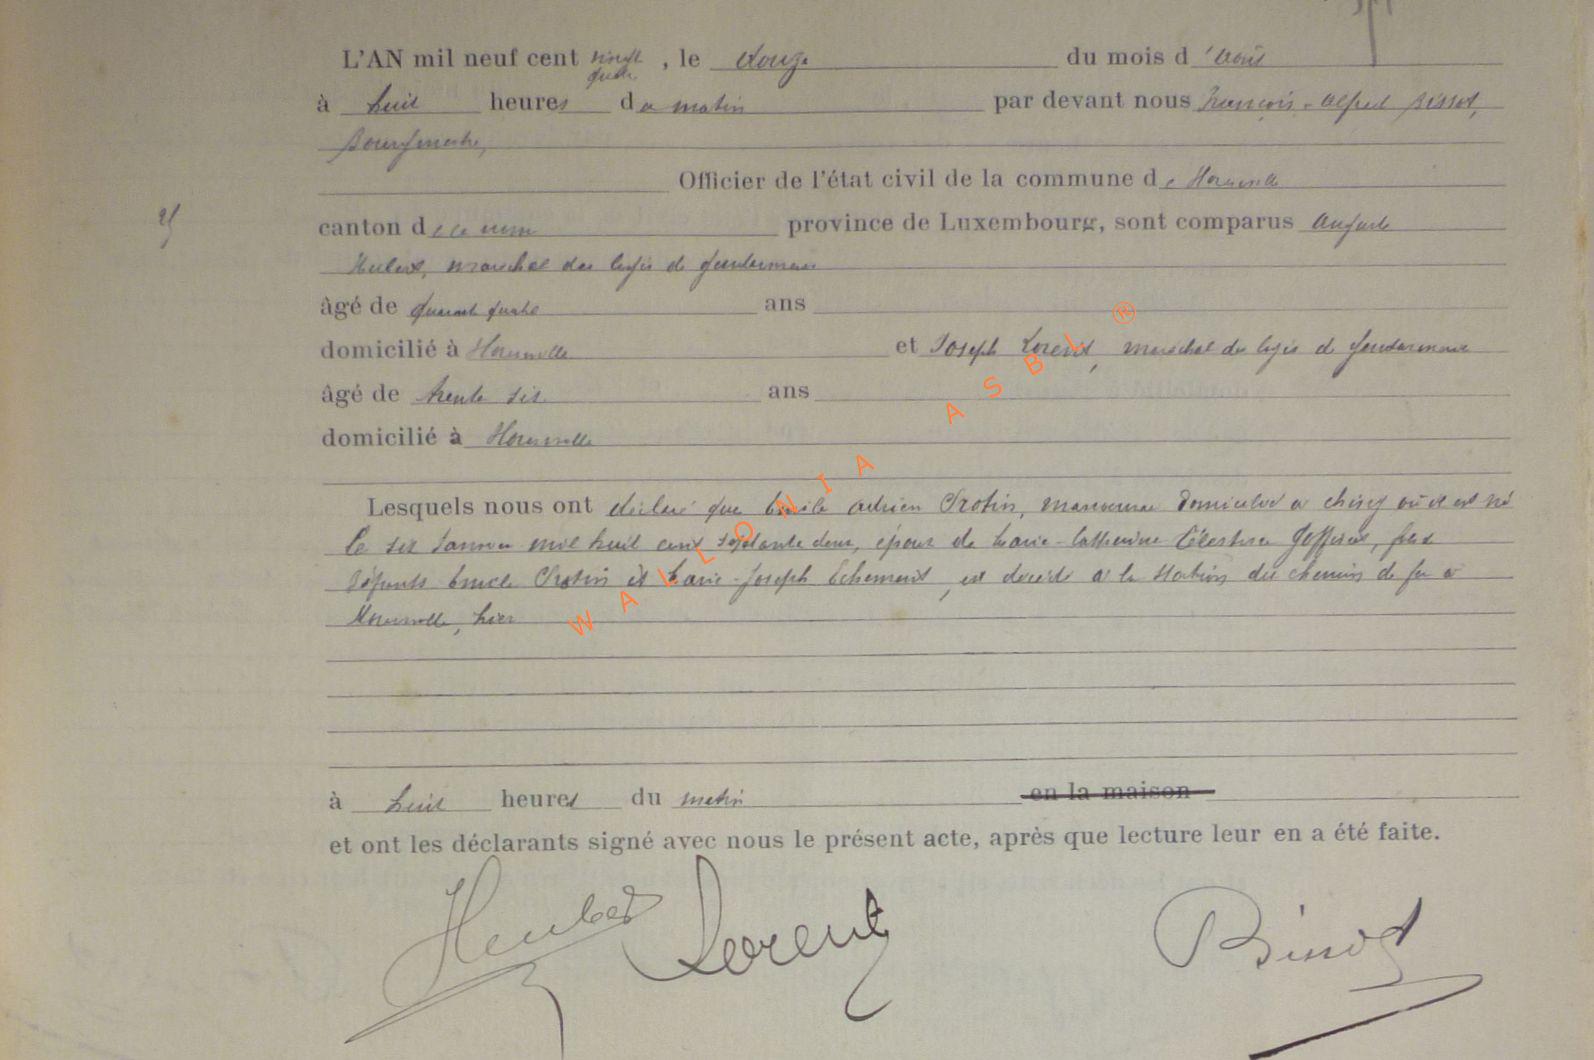 L'AN mil neuf cent vingt quatre, le douze du mois d'août
à huit heures du matin par devant nous François-Alfred Bissot,
Bourgmestre,
Officier de l'état civil de la commune de
canton de province de Luxembourg, sont comparus Auguste
Hubert, maréchal des logis de gendarmerie
âgé de quarante quatre ans
domicilié à et Joseph Lorent, maréchal des logis de gendarmerie
âgé de trente six ans
domicilié à
Lesquels nous ont déclaré que Emile Adrien Crotin, manoeuvre domicilié à Chiny où il est né
le six janvier mil huit cent soixante deux, époux de Marie-Catherine Célestine, fils des
défunts Emile Crotin et Marie-Joseph, est décédé à la station du chemin de fer à
hier
à huit heures du matin en la maison
et ont les déclarants signé avec nous le présent acte, après que lecture leur en a été faite.
Hubert Lorent Bissot
WALLONIA ASBL ®